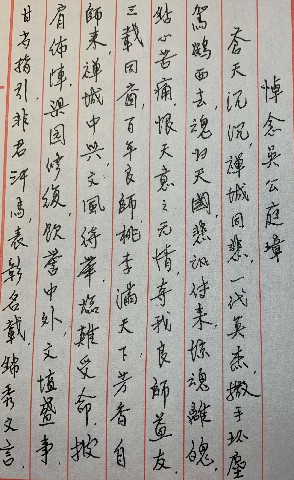 悼念吴公庭璋
苍天沉沉,禅城同悲,一代英杰,撒手环尘
驾鹤西去,魂归天国,悲讯传来,惊魂离魄,
钻心苦痛,恨天意之无情,夺我良师益友
三载同窗,百年良师,桃李满天下芳香自
师来,禅城中兴,文风待举,临难受命,披
肩布阵,梁园修复,饮誉中外,文坛盛事
甘为指引,非君汗马,表彰名载,锦秀文言